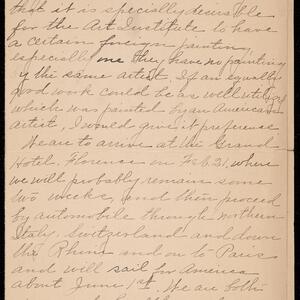 that it is specially desirable
for the Art Institute to have
a certain foreign painting,
especially one they have no painting
of the same artist. If an equally
good work could be as well
which was painted by an American
artist, I would give it preference
We are to arrive at the Grand
Hotel, Florence on Feb. 21, where
we will probably remain some
two weeks, and then proceed
by automobile through northern
Italy, Switzerland and down
the Rhine and on to Paris
and will sail for America
about June 1st. We are both